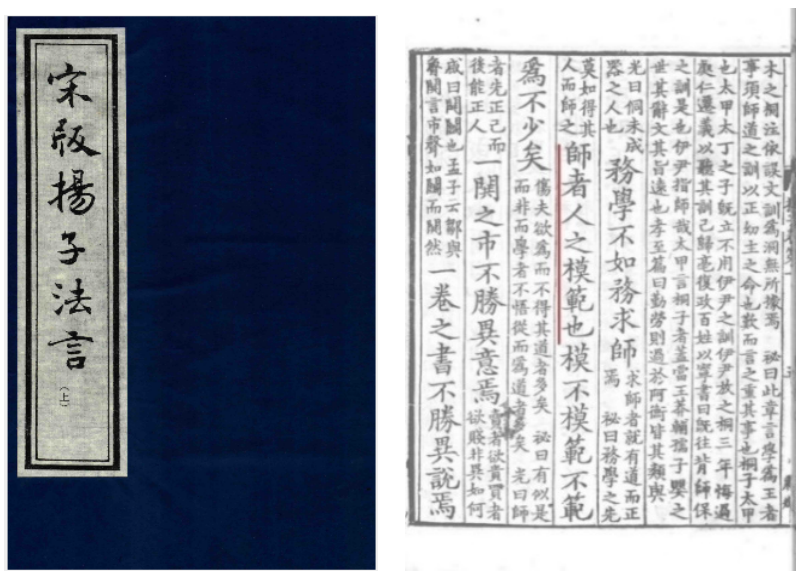 宋版揚子法言
(上)
木之桐注依誤文訓為洞無所據焉 祕曰此章言學為王者
事須師道之訓以正幼主之命也數而言之重其事也桐子太甲
也太甲太丁之子既立不用伊尹之訓伊尹放之桐三年悔過
處仁遷義以聽其訓己歸亳復政百姓以寧書曰既往背師保
之訓是也伊尹指師哉太甲言桐子者蓋當王莽輔孺子嬰之
世其辭文其旨遠也孝至篇曰勤勞則過於阿衡皆其類與
光曰侗未成
器之人也
務學不如務求師
求師者就有道而正
焉 祕曰務學之先
莫如得其
人而師之
師者人之模範也模不模範不範
為不少矣
傷夫欲為而不得其道者多矣 祕曰有似是
而非而學者不悟從而為道者多矣 光曰師
者先正己而
後能正人
一閧之市不勝異意焉
賣者欲貴買者
欲賤非異如何
咸曰閧鬭也孟子云鄒與
魯閧言市聲如鬭而閧然
一卷之書不勝異說焉